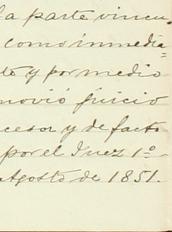 la parte vincu
como inmedia=
to y por medio
movió juicio
cesor y de facto
por el Juez 1º
Agosto de 1851.